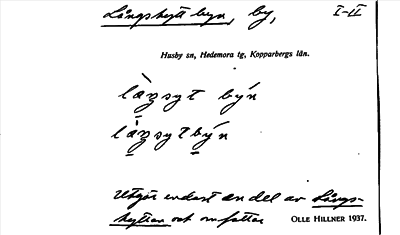 Långshytt byn, by, I-II
Husby sn, Hedemora tg, Kopparbergs län.
làŋsyt býn
làŋsytbýn
Utgör endast en del av Långs-
hyttan och omfattar OLLE HILLNER 1937.